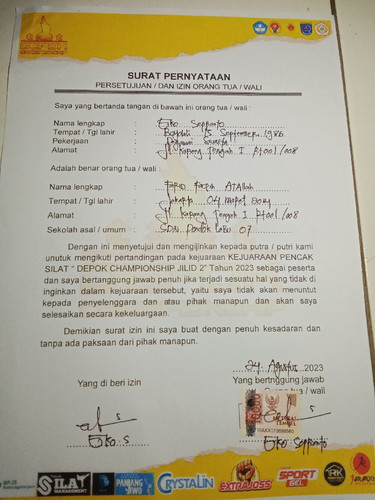 SURAT PERNYATAAN
PERSETUJUAN / DAN IZIN ORANG TUA / WALI
Saya yang bertanda tangan di bawah ini orang tua / wali :
Nama lengkap : Eko Seprianto
Tempat / Tgl lahir : Boyolali 15 September 1986
Pekerjaan :
Alamat : Jl. Kapong Tengah I Rt001/008
Adalah benar orang tua / wali :
Nama lengkap : Atallah
Tempat / Tgl lahir : Jakarta 04 Maret
Alamat : Jl. Kapong Tengah I Rt001/008
Sekolah asal / umum : SDN Pondok Labu 07
Dengan ini menyetujui dan mengijinkan kepada putra / putri kami
unutuk mengikuti pertandingan pada kejuaraan KEJUARAAN PENCAK
SILAT " DEPOK CHAMPIONSHIP JILID 2" Tahun 2023 sebagai peserta
dan saya bertanggung jawab penuh jika terjadi sesuatu hal yang tidak di
inginkan dalam kejuaraan tersebut, yaitu saya tidak akan menuntut
kepada penyelenggara dan atau pihak manapun dan akan saya
selesaikan secara kekeluargaan.
Demikian surat izin ini saya buat dengan penuh kesadaran dan
tanpa ada paksaan dari pihak manapun.
24 Agustus 2023
Yang di beri izin
Yang bertnggung jawab
Orang tua / wali
TEMPEL
Eko.S
Eko Seprianto
SILAT
PANDANG JIWO
CRYSTALIN
EXTRAJOSS
SPORT GEL
RK